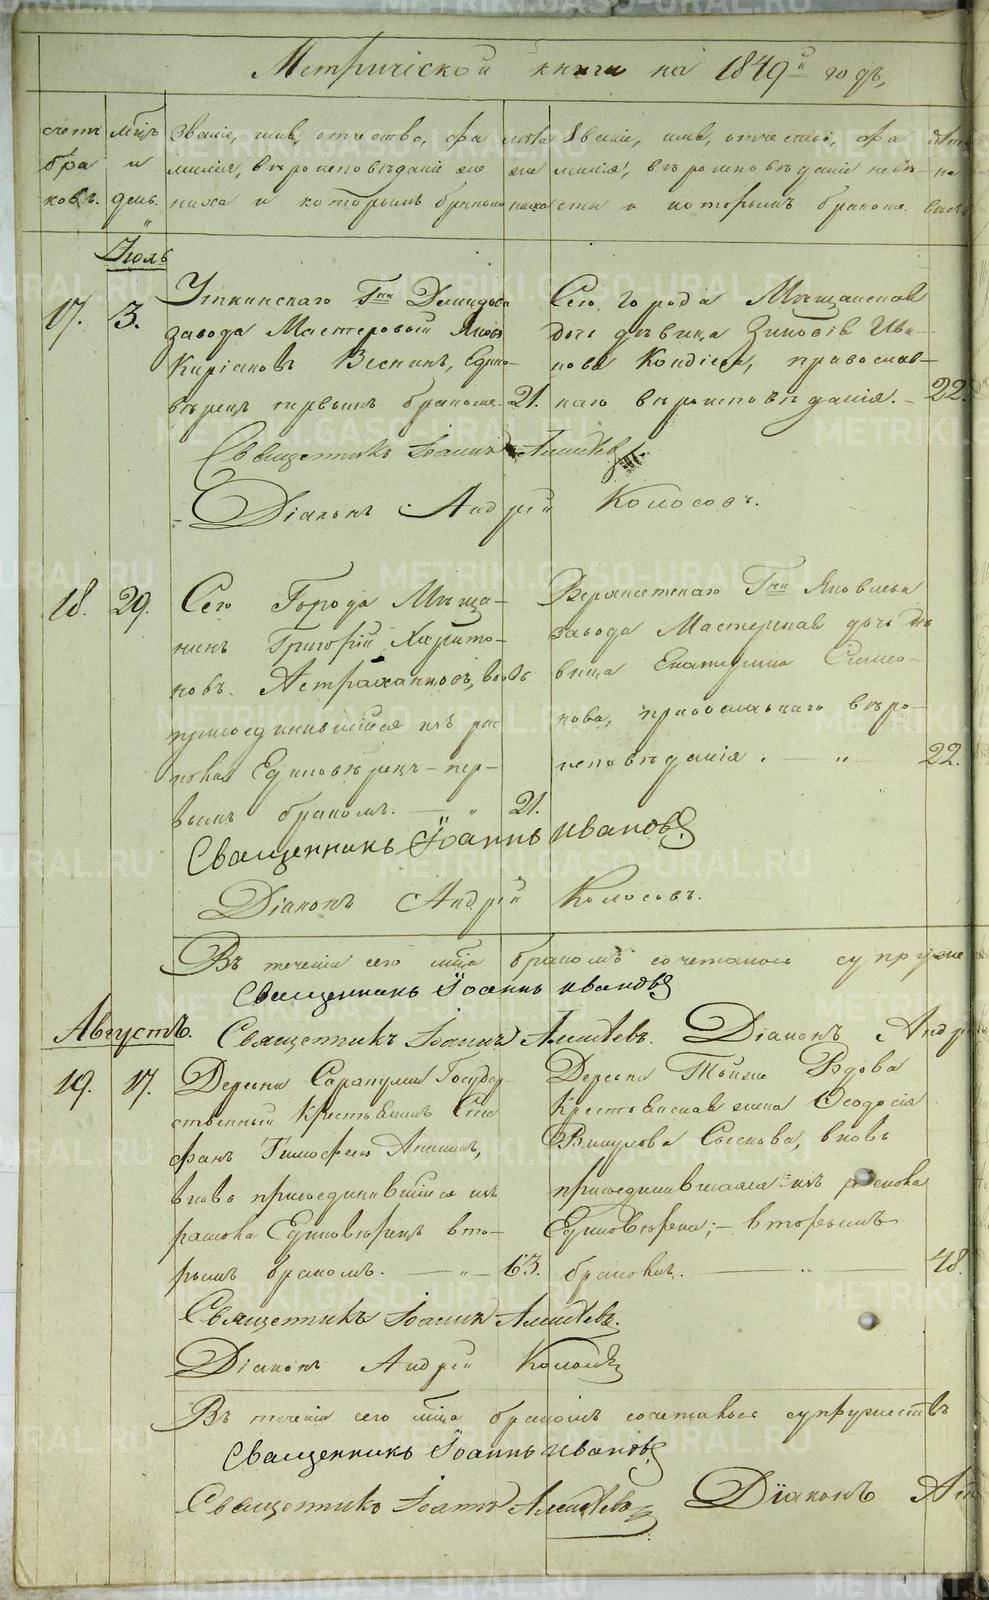 Метрической книги на 1849й годъ,
счетъ браковъ.
мѣцъ и день.
Званіе, имя, отчество, фамилія, вѣроисповѣданіе жениха и которымъ бракомъ
лѣта жениха
Званіе, имя, отчество, фамилія, вѣроисповѣданіе невѣсты и которымъ бракомъ.
Іюль
17. 3.
Уткинскаго Гна Демидова
завода Мастеровый Яковъ
Киріаковъ Веснинъ, Едино-
вѣрецъ первымъ бракомъ. 21.
Сего города Мѣщанская
дочь дѣвица Зиновія Ива-
нова, православ-
наго вѣроисповѣданія. 22.
Священникъ Іоаннъ
Діаконъ Андрей Колосовъ.
18. 29.
Сего Города Мѣща-
нинъ Григорій Харито-
новъ Астраханцовъ, вновь
присоединившійся изъ рас
кола Единовѣрецъ – пер-
вымъ бракомъ. 21.
Верхисетскаго Гна Яковлева
завода Мастерская дочь дѣ
вица Екатерина Симео-
нова, православнаго вѣро-
исповѣданія. 22.
Священникъ Іоаннъ Ивановъ
Діаконъ Андрей Колосовъ.
Въ теченіи сего мѣца бракомъ сочеталось супруже
Священникъ Іоаннъ Ивановъ
Августъ.
Священникъ Іоаннъ Діаконъ Андр
19. 17.
Деревни Сарапулки Государ
ственный Крестьянинъ Сте
фанъ Тимофеевъ Ананьинъ,
вновь присоединившійся изъ
раскола Единовѣрецъ вто-
рымъ бракомъ. 63.
Деревни Тойже Вдова
Крестьянская жена Ѳеодосія
Викулова, вновь
присоединившаяся изъ раскола
Единовѣрка; – вторымъ
бракомъ. 48.
Священникъ Іоаннъ
Діаконъ Андрей Колосовъ
Въ теченіи сего мѣца бракомъ сочеталось супружествъ
Священникъ Іоаннъ Ивановъ
Священникъ Іоаннъ Діаконъ
METRIKI.GASO-URAL.RU